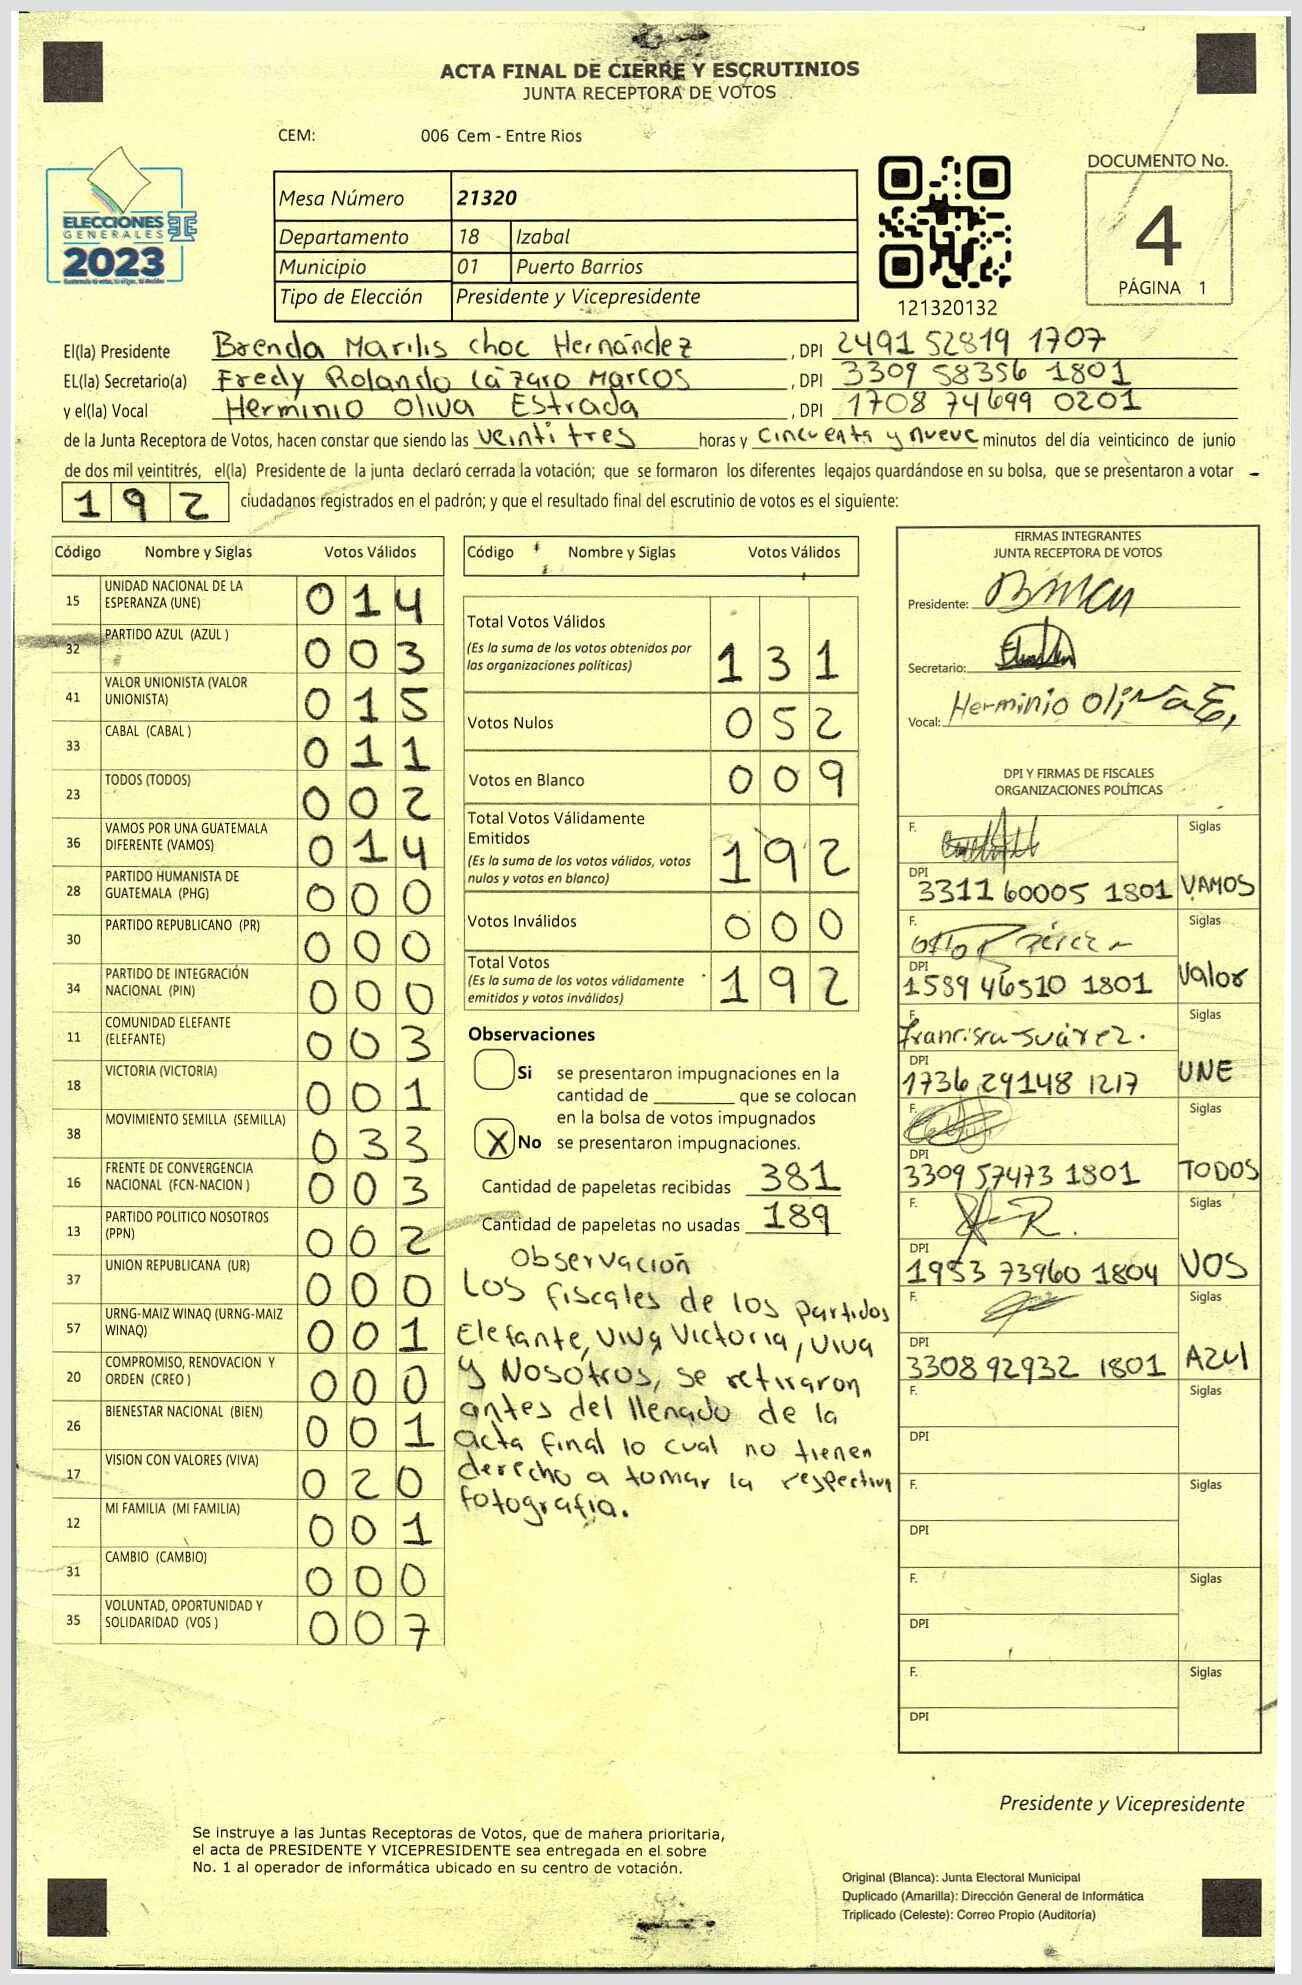 ACTA FINAL DE CIERRE Y ESCRUTINIOS
JUNTA RECEPTORA DE VOTOS
CEM: 006 Cem - Entre Rios
DOCUMENTO No.
4
PÁGINA 1
ELECCIONES
GENERALES
2023
Mesa Número 21320
Departamento 18 Izabal
Municipio 01 Puerto Barrios
Tipo de Elección Presidente y Vicepresidente
121320132
El(la) Presidente Brenda Marilis Choc Hernández , DPI 2491 52819 1707
EL(la) Secretario(a) Fredy Rolando Lázaro Marcos , DPI 3309 58356 1801
y el(la) Vocal Herminio Oliva Estrada , DPI 1708 74699 0201
de la Junta Receptora de Votos, hacen constar que siendo las veintitres horas y cincuenta y nueve minutos del día veinticinco de junio
de dos mil veintitrés, el(la) Presidente de la junta declaró cerrada la votación; que se formaron los diferentes legajos quardándose en su bolsa, que se presentaron a votar
192 ciudadanos registrados en el padrón; y que el resultado final del escrutinio de votos es el siguiente:
Código Nombre y Siglas Votos Válidos
15 UNIDAD NACIONAL DE LA ESPERANZA (UNE) 014
32 PARTIDO AZUL (AZUL ) 003
41 VALOR UNIONISTA (VALOR UNIONISTA) 015
33 CABAL (CABAL ) 011
23 TODOS (TODOS) 002
36 VAMOS POR UNA GUATEMALA DIFERENTE (VAMOS) 014
28 PARTIDO HUMANISTA DE GUATEMALA (PHG) 000
30 PARTIDO REPUBLICANO (PR) 000
34 PARTIDO DE INTEGRACIÓN NACIONAL (PIN) 000
11 COMUNIDAD ELEFANTE (ELEFANTE) 003
18 VICTORIA (VICTORIA) 001
38 MOVIMIENTO SEMILLA (SEMILLA) 033
16 FRENTE DE CONVERGENCIA NACIONAL (FCN-NACION ) 003
13 PARTIDO POLITICO NOSOTROS (PPN) 002
37 UNION REPUBLICANA (UR) 000
57 URNG-MAIZ WINAQ (URNG-MAIZ WINAQ) 001
20 COMPROMISO, RENOVACION Y ORDEN (CREO ) 000
26 BIENESTAR NACIONAL (BIEN) 001
17 VISION CON VALORES (VIVA) 020
12 MI FAMILIA (MI FAMILIA) 001
31 CAMBIO (CAMBIO) 000
35 VOLUNTAD, OPORTUNIDAD Y SOLIDARIDAD (VOS ) 007
Código Nombre y Siglas Votos Válidos
Total Votos Válidos 131
(Es la suma de los votos obtenidos por
las organizaciones políticas)
Votos Nulos 052
Votos en Blanco 009
Total Votos Válidamente
Emitidos 192
(Es la suma de los votos válidos, votos
nulos y votos en blanco)
Votos Inválidos 000
Total Votos 192
(Es la suma de los votos válidamente
emitidos y votos inválidos)
Observaciones
Si se presentaron impugnaciones en la
cantidad de ________ que se colocan
en la bolsa de votos impugnados
X No se presentaron impugnaciones.
Cantidad de papeletas recibidas 381
Cantidad de papeletas no usadas 189
Observación
Los fiscales de los partidos
Elefante, viva Victoria, viva
y Nosotros, se retiraron
antes del llenado de la
acta final lo cual no tienen
derecho a tomar la respectiva
fotografia.
FIRMAS INTEGRANTES
JUNTA RECEPTORA DE VOTOS
Presidente:
Secretario:
Vocal: Herminio Oliva E.
DPI Y FIRMAS DE FISCALES
ORGANIZACIONES POLÍTICAS
F. Siglas
DPI 3311 60005 1801 VAMOS
F. Siglas
DPI 1589 46510 1801 Valor
F. Francisca Suárez. Siglas
DPI 1736 29148 1217 UNE
F. Siglas
DPI 3309 57473 1801 TODOS
F. Siglas
DPI 1953 73960 1804 VOS
F. Siglas
DPI 3308 92932 1801 AZUl
F. Siglas
DPI
F. Siglas
DPI
F. Siglas
DPI
F. Siglas
DPI
Presidente y Vicepresidente
Se instruye a las Juntas Receptoras de Votos, que de manera prioritaria,
el acta de PRESIDENTE Y VICEPRESIDENTE sea entregada en el sobre
No. 1 al operador de informática ubicado en su centro de votación.
Original (Blanca): Junta Electoral Municipal
Duplicado (Amarilla): Dirección General de Informática
Triplicado (Celeste): Correo Propio (Auditoría)